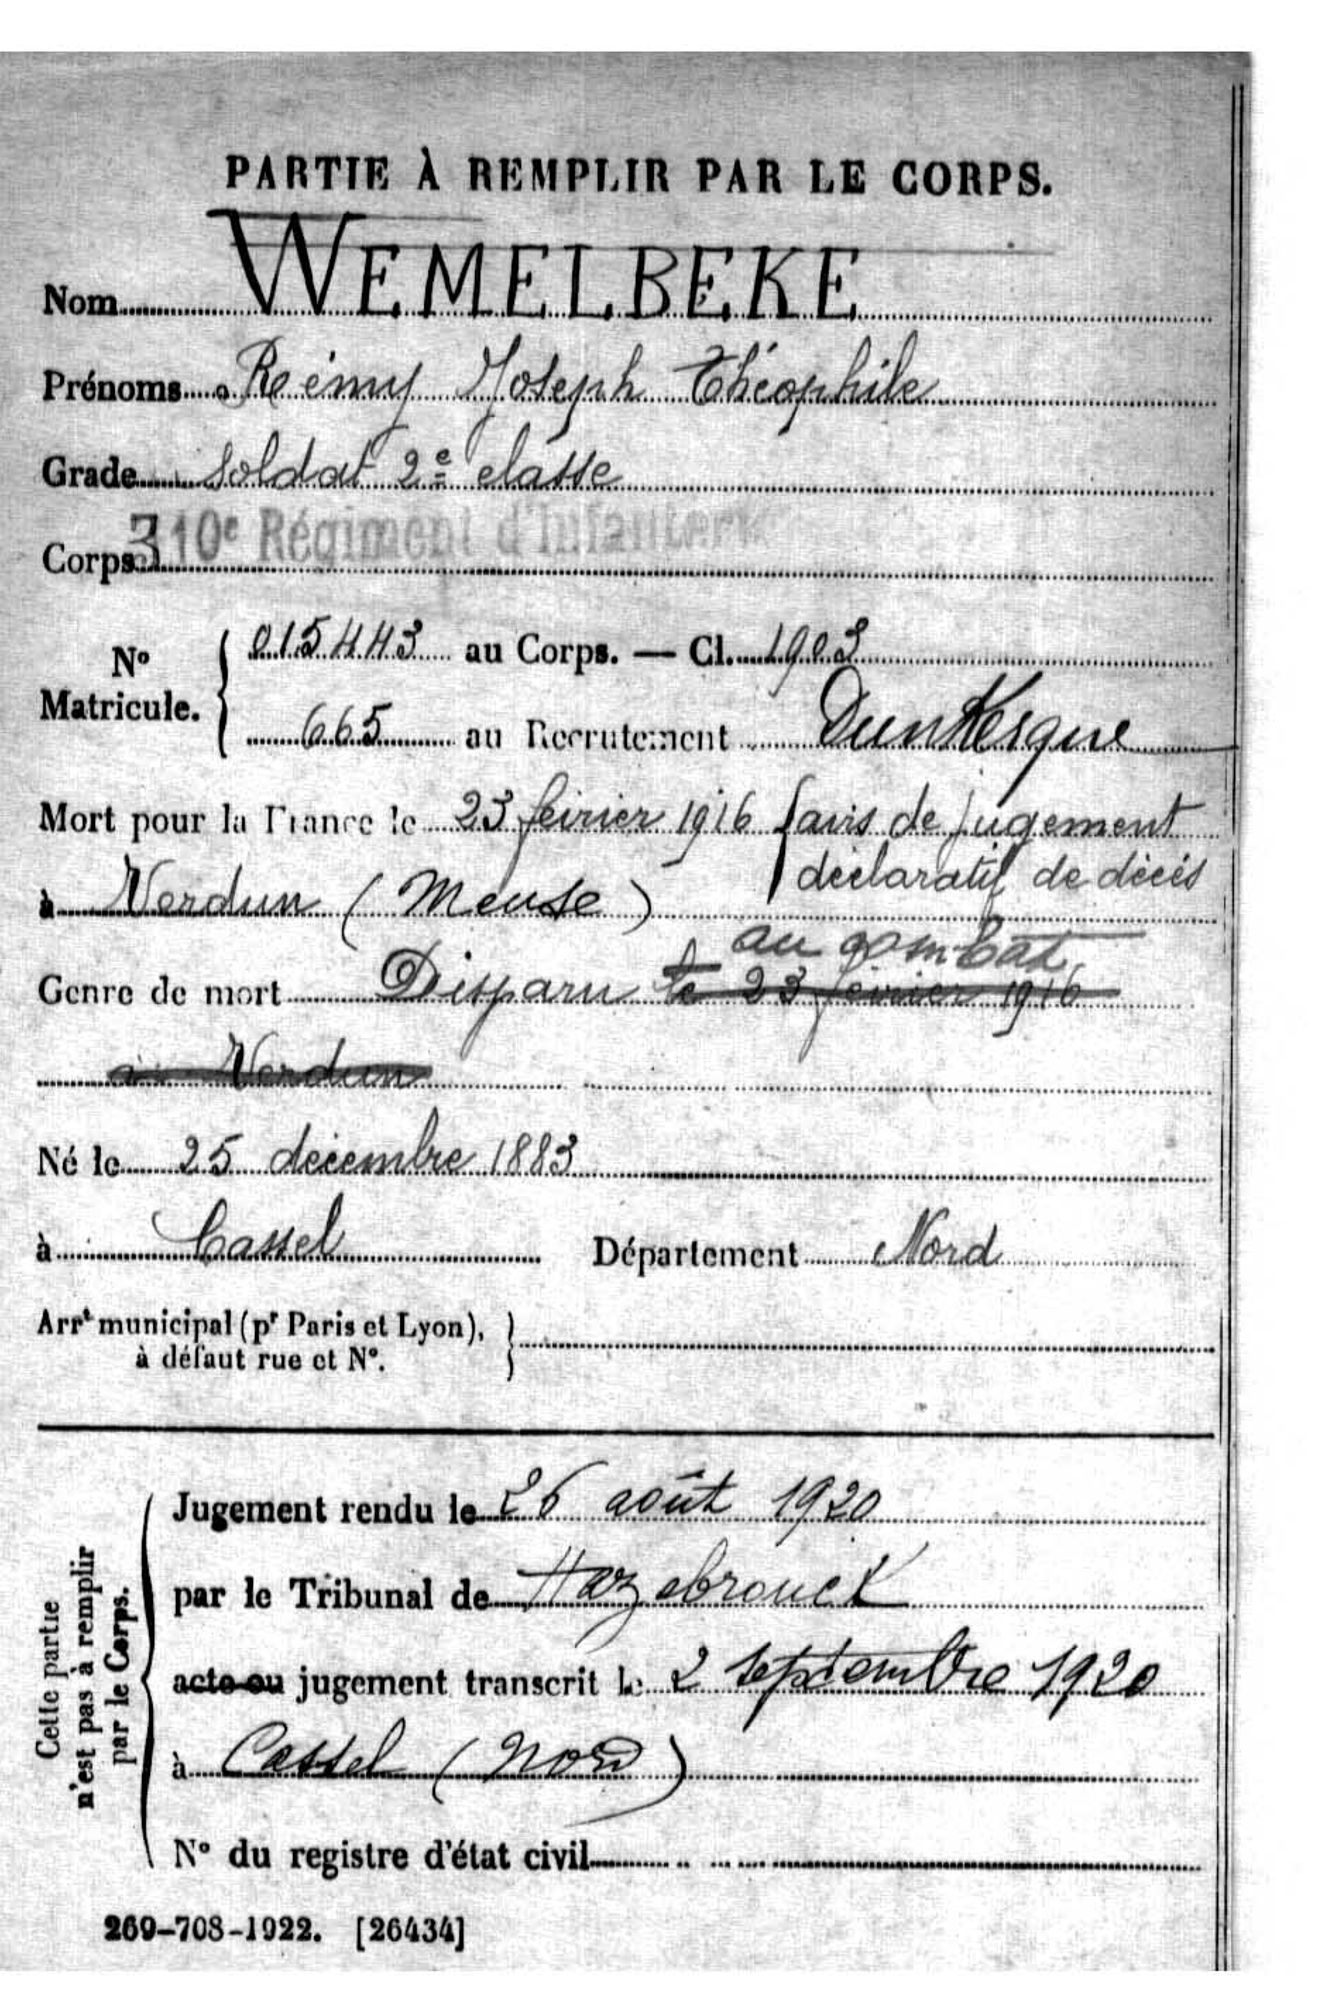 PARTIE À REMPLIR PAR LE CORPS.
Nom WEMELBEKE
Prénoms Rémy Joseph Théophile
Grade soldat 2e classe
Corps 310e Régiment d'Infanterie
No Matricule. 015443 au Corps. — Cl. 1903
665 au Recrutement Dunkerque
Mort pour la France le 23 février 1916 (avis de jugement
déclaratif de décès
à Verdun (Meuse)
au combat
Genre de mort Disparu le 23 février 1916
à Verdun
Né le 25 décembre 1883
à Cassel Département Nord
Arrt municipal (pr Paris et Lyon),
à défaut rue et No.
Cette partie
n'est pas à remplir
par le Corps.
Jugement rendu le 26 août 1920
par le Tribunal de Hazebrouck
acte ou jugement transcrit le 2 septembre 1920
à Cassel (Nord)
No du registre d'état civil
269-708-1922. [26434]